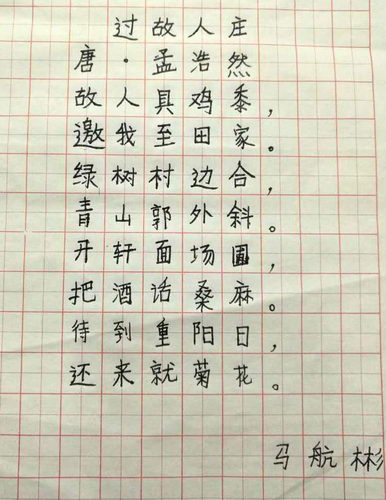 过故人庄
唐·孟浩然
故人具鸡黍，
邀我至田家。
绿树村边合，
青山郭外斜。
开轩面场圃，
把酒话桑麻。
待到重阳日，
还来就菊花。
马航彬